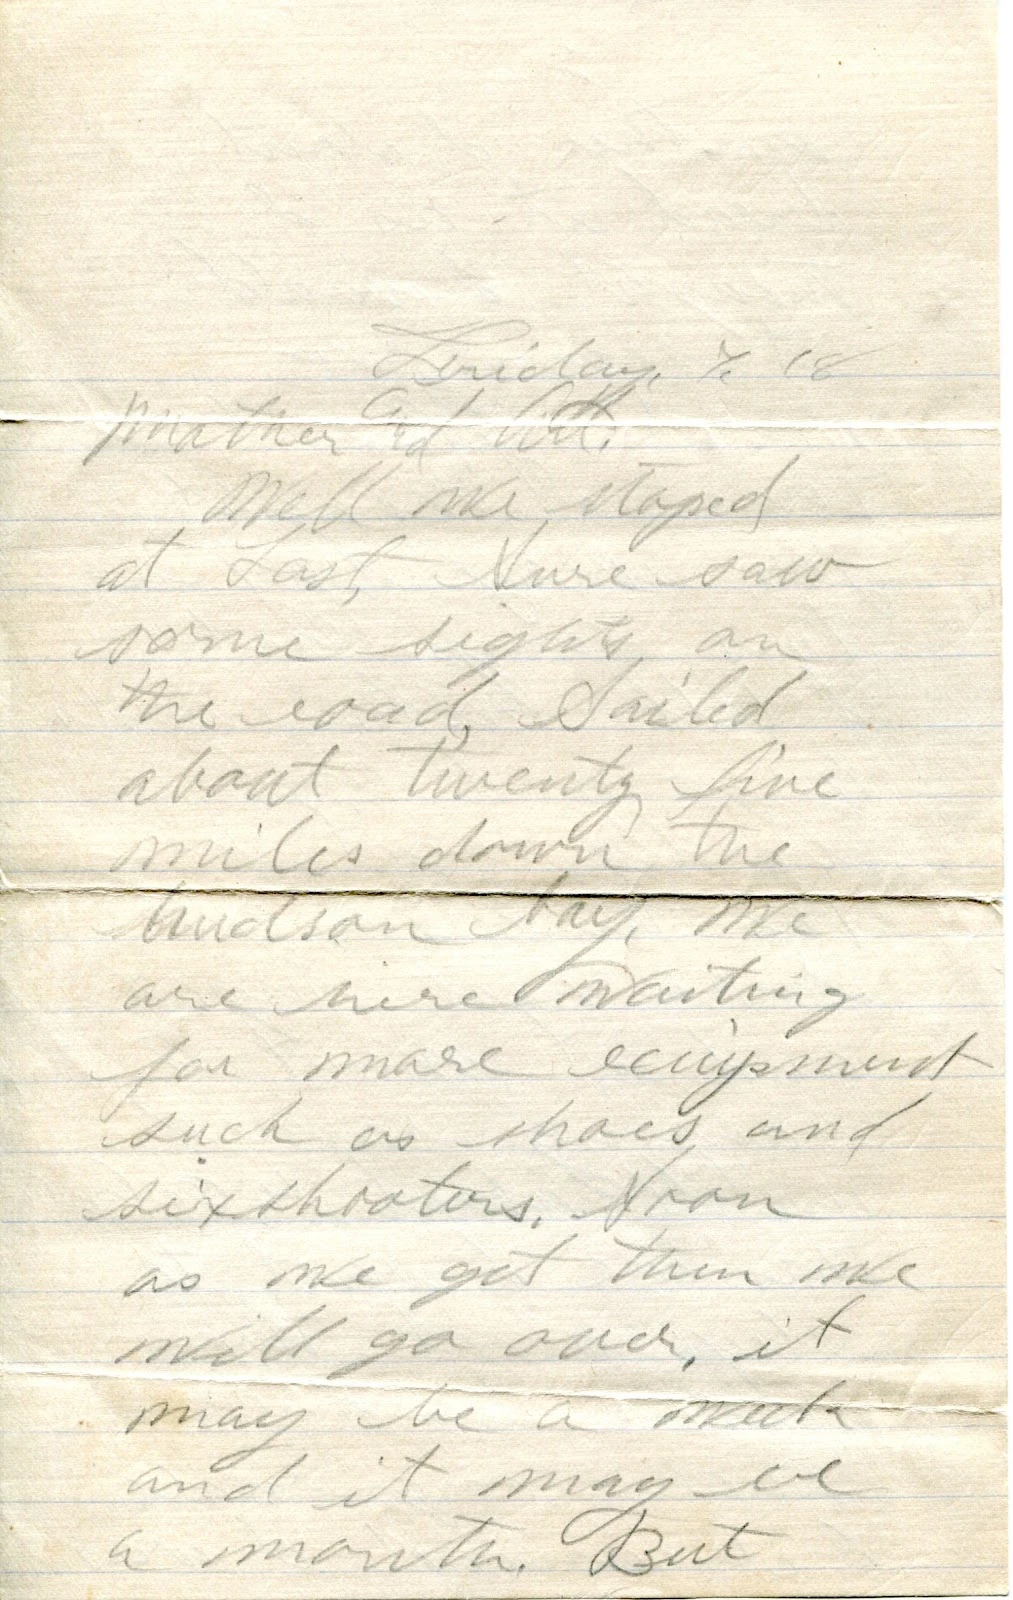 Friday, 18
Mother and All.
Well we stoped
at Last, Sure saw
some sights on
the road, Sailed
about twenty five
miles down the
hudson bay. We
are here waiting
for more equipment
such as shoes and
sixshooters. Soon
as we get them we
will go over, it
may be a week
and it may be
a month. But